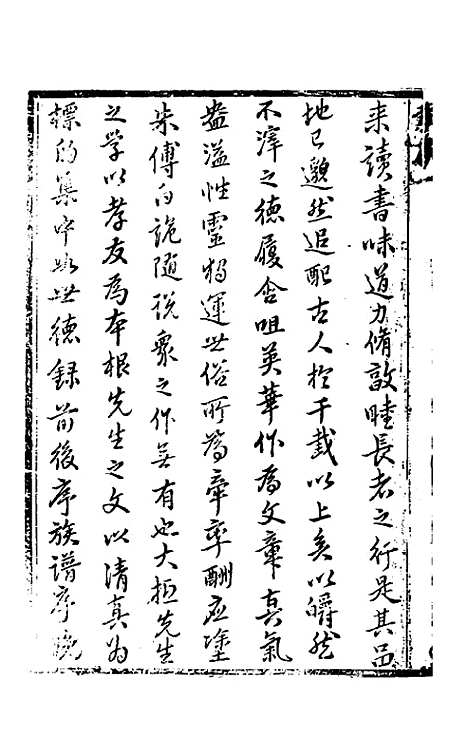 来讀書味道力脩敦睦長者之行是其品
地已邈然追配古人於千載以上矣以皭然
不滓之德履含咀英華作為文章真氣
盎溢性靈獨運世俗所為牽率酬应塗
朱傅白詭随說衆之作無有也大抵先生
之學以孝友為本根先生之文以清真为
標的集中如世德録前後序族譜序